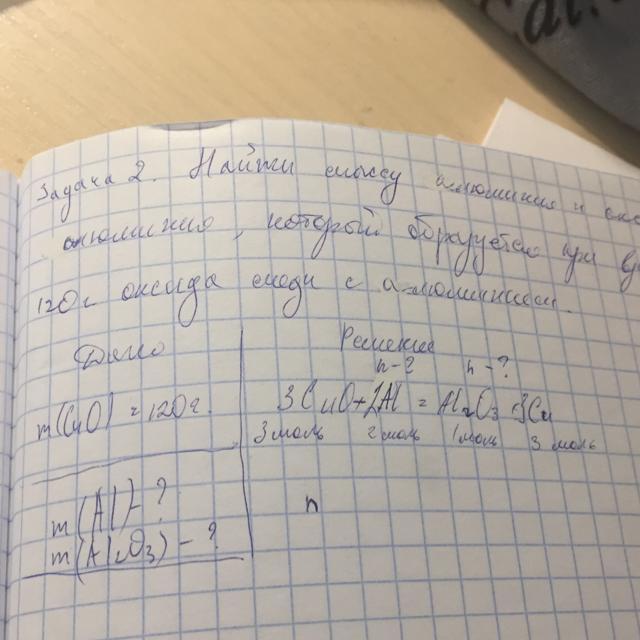 Задача 2. Найти массу алюминия и
алюминия, которой образуется при
120г оксида меди с алюминием.
Дано
Решение
n-? n-?
m(CuO) = 120г.
3CuO+2Al = Al2O3+3Cu
3 моль 2 моль 1 моль 3 моль
m(Al)-?
n
m(Al2O3)-?